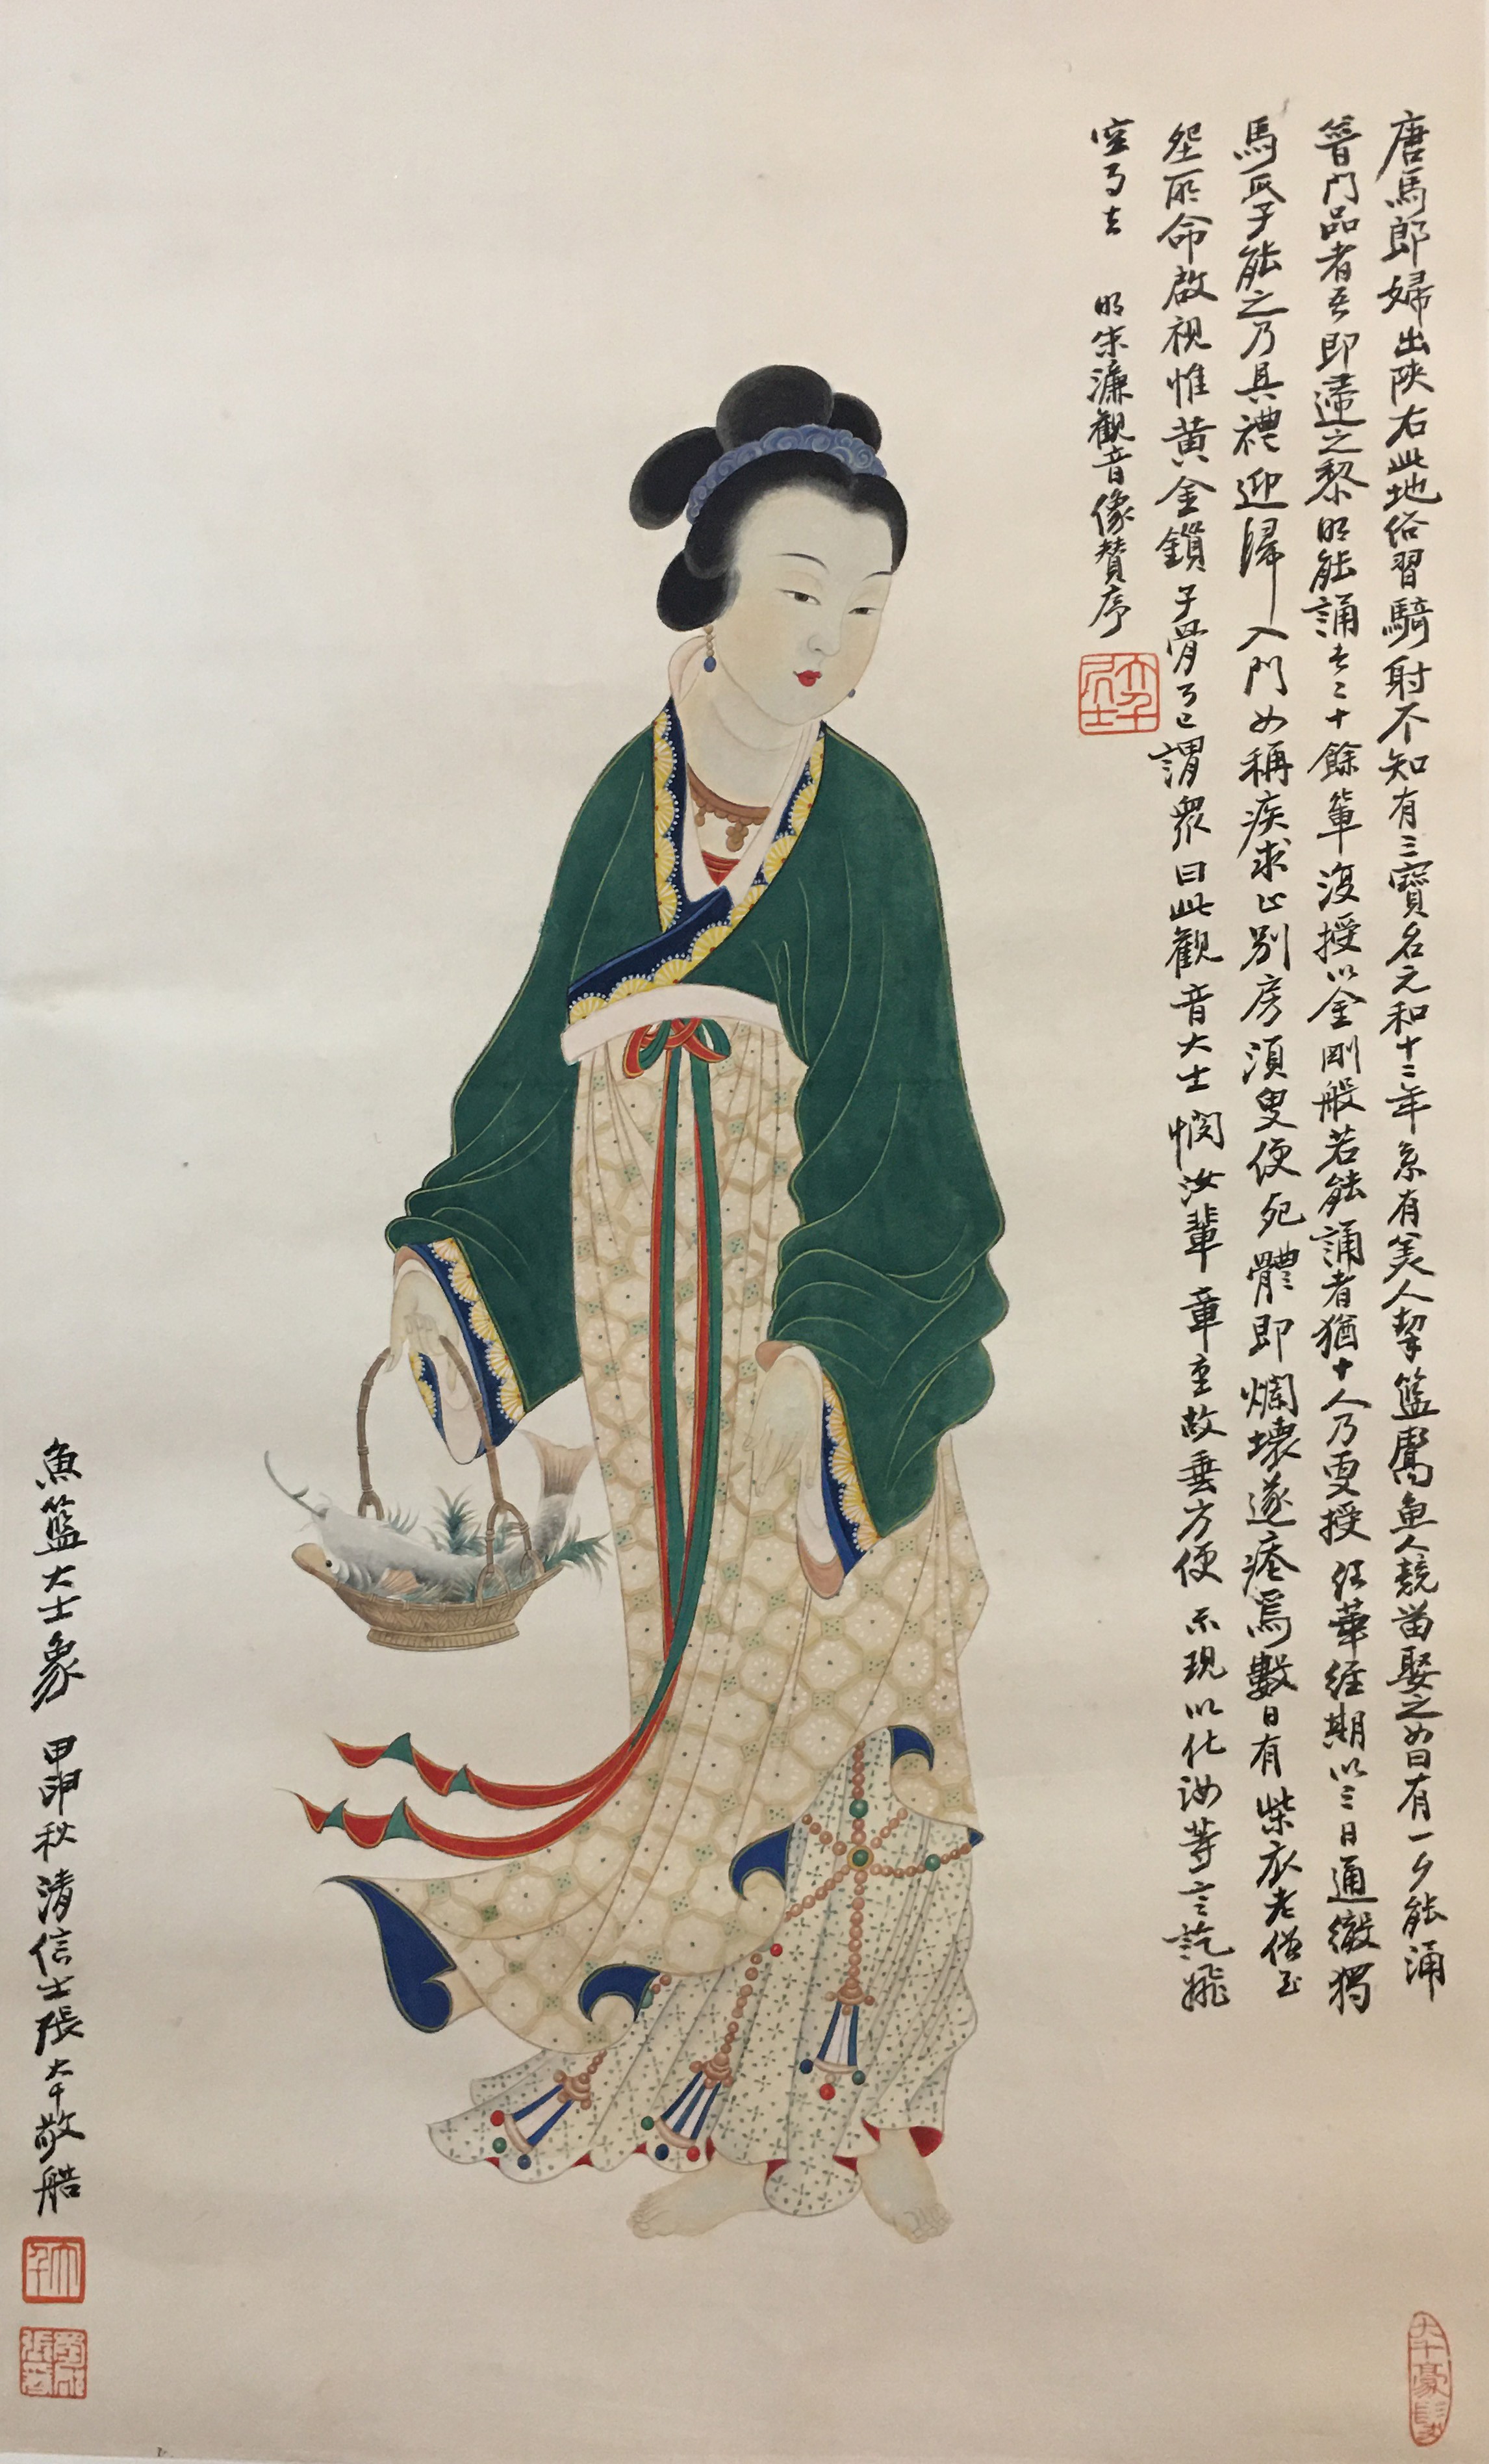 唐馬郎婦出陝右此地俗習騎射不知有三寶名元和十二年有美人挈籃鬻魚人競留娶之女曰有一夕能誦
普門品者吾即歸之黎明能誦者二十餘輩復授以金剛般若能誦者猶十人乃更授法華經期以三日通徹獨
馬氏子能之乃具禮迎歸入門女稱疾求止別房須臾便死體即爛壞遂瘞焉數日有紫衣老僧至
所命啟視惟黃金鎖子骨而已謂眾曰此觀音大士憫汝輩章重故垂方便示現以化汝等言訖飛
空而去 明宋濂觀音像贊序
大千居士
魚籃大士象 甲申秋清信士張大千敬艁
大千
蜀郡張爰
大千豪髮